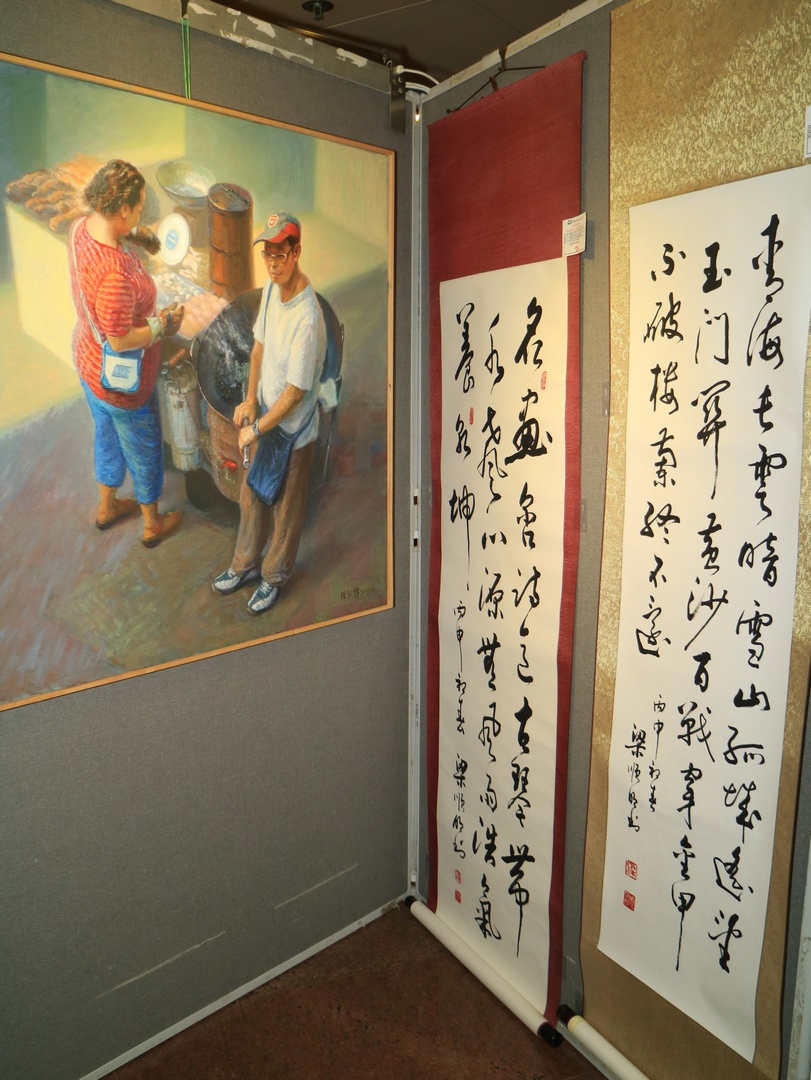 名畫詩意古琴帶
風心源無風雨浩氣
養乾坤
丙申初春 梁順
青海长雲暗雪山孤城遙望
玉門關黃沙百戰穿金甲
不破樓蘭終不還
丙申初春
梁順